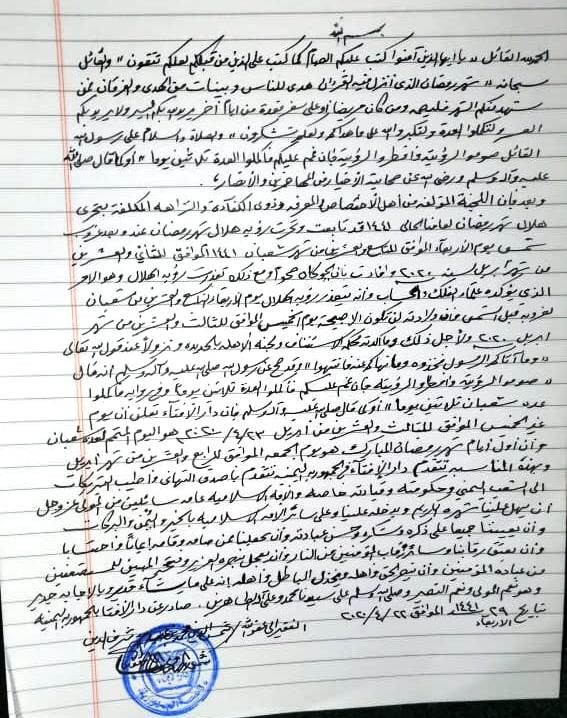 بسم الله
الحمد لله القائل « يا ايها الذين آمنوا كتب عليكم الصيام كما كتب على الذين من قبلكم لعلكم تتقون » والقائل
سبحانه « شهر رمضان الذي أنزل فيه القرآن هدى للناس وبينات من الهدى والفرقان فمن
شهد منكم الشهر فليصمه ومن كان مريضا او على سفر فعدة من ايام أخر يريد الله بكم اليسر ولا يريد بكم
العسر ولتكملوا العدة ولتكبروا الله على ما هداكم ولعلكم تشكرون » والصلاة والسلام على رسول الله
القائل صوموا لرؤيته وافطروا لرؤيته فإن غم عليكم فأكملوا العدة ثلاثين يوما » أو كما قال صلى الله
عليه وآله وسلم ورضي الله عن صحابته الأخيار من المهاجرين والأنصار ؛
وبعد فإن اللجنة المؤلفه من أهل الاختصاص والمعرفه وذوي الكفاءة والنزاهه المكلفة بتحري
هلال شهر رمضان لعامنا الحالي ١٤٤١ قد تابعت وتحرت رؤية هلال شهر رمضان عند وبعد غروب
شمس يوم الأربعاء الموفق للتاسع والعشرين من شهر شعبان ١٤٤١ الموافق للثاني والعشرين
من شهر أبريل لسنة ٢٠٢٠ وأفادت بأن الجو كان صحوا ومع ذلك تعذرت رؤية الهلال وهو الامر
الذي يؤكده علماء الفلك والحساب وأنه يتعذر رؤية الهلال يوم الأربعاء التاسع والعشرين من شعبان
لغروبه قبل الشمس فإن ولادته لن تكون الا صبيحة يوم الخميس الموفق للثالث والعشرين من شهر
ابريل ٢٠٢٠ ولأجل ذلك وما أكدته محكمة الاستئناف ولجنة الاهله بالحديده ونزولا عند قول الله تعالى
« وما آتاكم الرسول فخذوه وما نهاكم عنه فانتهوا » وقد صح عن رسول الله صلى الله عليه وآله وسلم انه قال
« صوموا لرؤيته وافطروا لرؤيته فإن غم عليكم فأكملوا العدة ثلاثين يوما وفي روايه فأكملوا
عدة شعبان ثلاثين يوما » أو كما قال صلى الله عليه وآله وسلم فإن دار الإفتاء تعلن أن يوم
غد الخميس الموفق للثالث والعشرين من ابريل ٢٣/٤/٢٠٢٠ هو اليوم المتمم لعدة شعبان
وأن أول أيام شهر رمضان المبارك هو يوم الجمعه الموفق للرابع والعشرين من شهر ابريل
وبهذه المناسبه تتقدم دار الإفتاء في الجمهوريه اليمنيه تتقدم بأصدق التهاني وأطيب التبريكات
الى الشعب اليمني وحكومته وقيادته خاصه والامة الاسلاميه عامه سائلين من المولى عز وجل
أن يهل علينا شهره الكريم ويدخله علينا وعلى سائر الامه الاسلاميه بالخير واليمن والبركات
وأن يعيننا جميعا على ذكره وشكره وحسن عبادته وأن يجعلنا ممن صامه وقامه إيمانا واحتسابا
وأن يعتق رقابنا وسائر رقاب المؤمنين من النار وأن يعجل بنصره العزيز وفتحه المبين للمستضعفين
من عباده المؤمنين وأن ينصر الحق وأهله ويخذل الباطل وأهله انه على ما يشاء قدير وبالإجابه جدير
وهو نعم المولى ونعم النصير وصلى الله وسلم على سيدنا محمد وعلى آله الطاهرين . صادر عن دار الإفتاء بالجمهورية اليمنية
بتاريخ ٢٩ ١٤٤١ الموفق ٢٢/٤/٢٠٢٠
الاربعاء
الفقير الى عفو الله / شمس الدين محمد شرف الدين